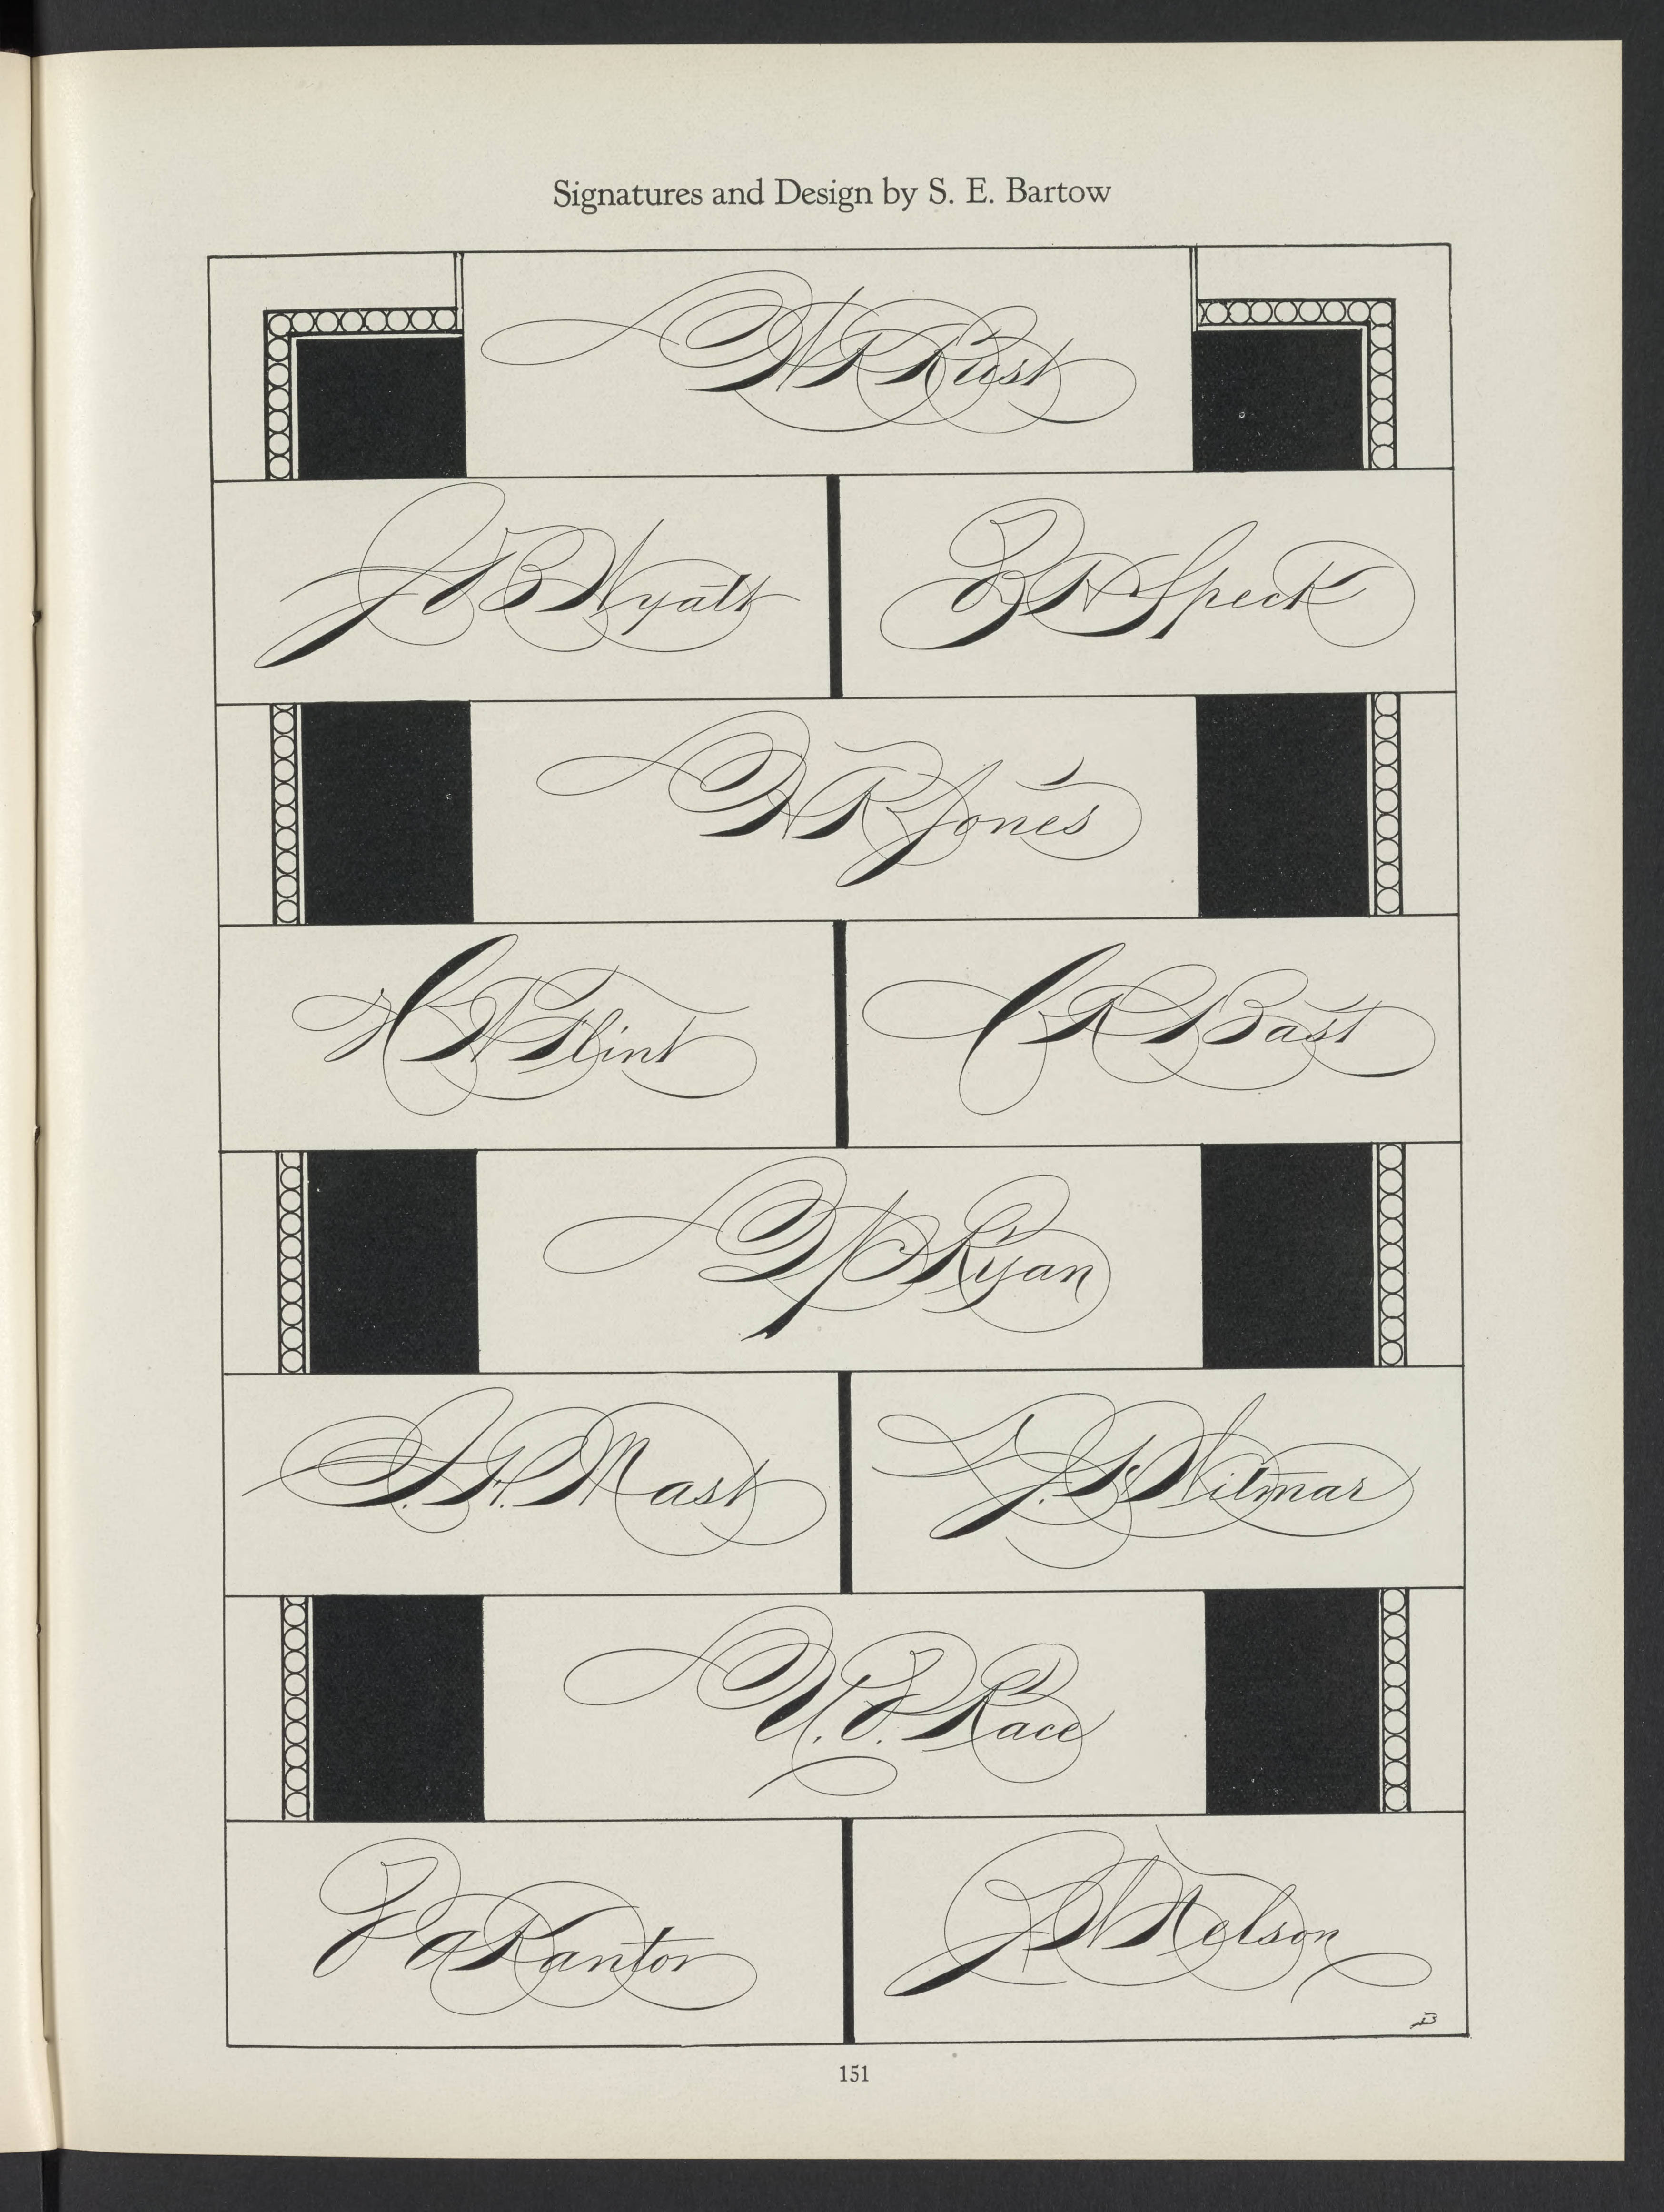 Signatures and Design by S. E. Bartow
W R Rust
J B Wyatt
B H Speck
H R Jones
C W Flint
C R Bast
W P Ryan
S. H. Mast
J. S. Witmar
U. J. Race
J A Kantor
J W Nelson
151